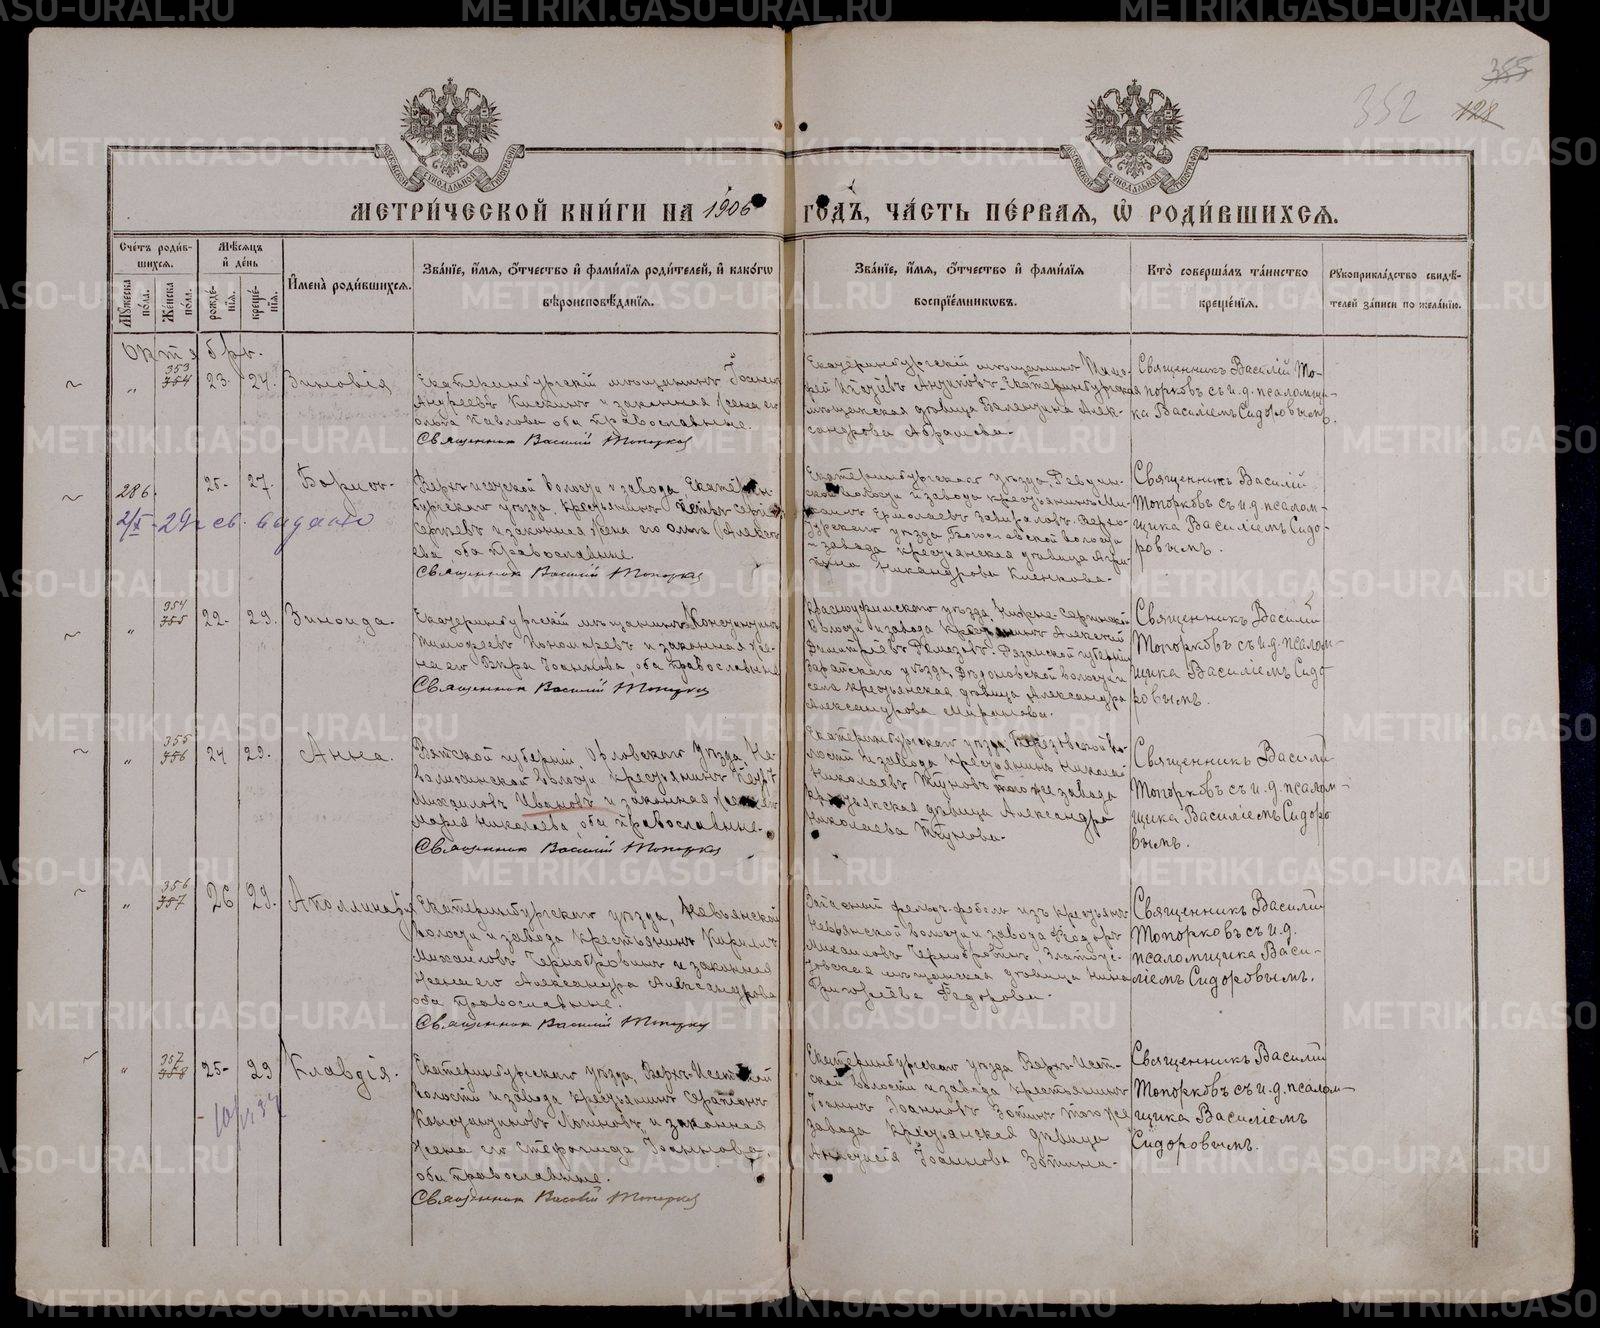 355
352 128
МЕТРИ́ЧЕСКОЙ КНИ́ГИ НА 1906 ГОДЪ, ЧА́СТЬ ПЕ́РВАЯ, Ѡ҆ РОДИ́ВШИХСЯ.
Сче́тъ роди́в-
шихся.
Мѣ́сяцъ
и҆ де́нь
И҆мена̀ роди́вшихся.
Зва́нїе, и҆́мя, ѻ҆́тчество и҆ фами́лїя роди́телей, и҆ како́гѡ
вѣроисповѣ́данїя.
Зва́нїе, и҆́мя, ѻ҆́тчество и҆ фами́лїя
воспрїе́мникѡвъ.
Кто̀ соверша́лъ та́инство
креще́нїя.
Рꙋкоприкла́дство свидѣ́-
телей за́писи по жела́нїю.
Мꙋ́жеска по́ла.
Же́нска по́ла.
рожде́нїя.
креще́нїя.
Октябрь.
353
354 23. 24. Зиновія
Екатеринбургскій мѣщанинъ Іоаннъ
Андреевъ и законная жена его
Ольга Павлова оба православные.
Священник Василий Топорков
Екатеринбургскій мѣщанинъ
Екатеринбургская
мѣщанская дѣвица Валентина Алек-
сандрова Абрамова.
Священникъ Василій То-
порковъ съ и.д. псаломщи-
ка Василіемъ Сидоровымъ.
286. 25. 27. Борисъ.
св. выдано
Верхъ-исетской волости и завода, Екатерин-
бургскаго уѣзда, крестьянинъ Петръ
Сергѣевъ и законная жена его Ольга
оба православные.
Священник Василий Топорков
Екатеринбургскаго уѣзда, Ревдин-
ской волости и завода крестьянинъ
Ермолаевъ Верхо-
турскаго уѣзда Богословской волости
и завода крестьянская дѣвица
Никандрова
Священникъ Василій
Топорковъ съ и.д. псалом-
щика Василіемъ Сидо-
ровымъ.
354
355 22. 29. Зинаида.
Екатеринбургскій мѣщанинъ Константинъ
Тимофеевъ Пономаревъ и законная же-
на его Вѣра Іоаннова, оба православные
Священник Василий Топорков
Красноуфимскаго уѣзда, Нижне-Сергинской
волости и завода крестьянинъ Алексѣй
Димитріевъ Рязанской губерніи
Зарайскаго уѣзда, волости и
села крестьянская дѣвица Александра
Александрова
Священникъ Василій
Топорковъ съ и.д. псалом-
щика Василіемъ Сидо-
ровымъ.
355
356 24 29. Анна.
Вятской губерніи, Орловскаго уѣзда,
волости крестьянинъ Петръ
Михаиловъ Ивановъ и законная жена его
Марія Николаева, оба православные.
Священник Василий Топорков
Екатеринбургскаго уѣзда, Березовской во-
лости и завода крестьянинъ Николай
Николаевъ того же завода
крестьянская дѣвица Александра
Николаева
Священникъ Василій
Топорковъ съ и.д. псалом-
щика Василіемъ Сидоро-
вымъ.
356
357 26 29. Аполлинарія
Екатеринбургскаго уѣзда, Невьянской
волости и завода крестьянинъ Кириллъ
Михаиловъ Чернобровинъ и законная
жена его Александра Александрова
оба православные.
Священник Василий Топорков
Запасный фельдфебель изъ крестьянъ
Невьянской волости и завода Ѳеодоръ
Михаиловъ Чернобровинъ, Златоус-
товская мѣщанская дѣвица Нина
Григоріева Ѳедорова.
Священникъ Василій
Топорковъ съ и.д.
псаломщика Васи-
ліемъ Сидоровымъ.
357
358 25 29 Клавдія.
Екатеринбургскаго уѣзда, Верхъ-Исетской
волости и завода крестьянинъ Серапіонъ
Константиновъ Логиновъ и законная
жена его Стефанида Іоаннова,
оба православные.
Священник Василий Топорков
Екатеринбургскаго уѣзда Верхъ-Исет-
ской волости и завода крестьянинъ
Іоаннъ Іоанновъ Зотинъ того же
завода крестьянская дѣвица
Анастасія Іоаннова Зотина.
Священникъ Василій
Топорковъ съ и.д. псалом-
щика Василіемъ
Сидоровымъ.
METRIKI.GASO-URAL.RU